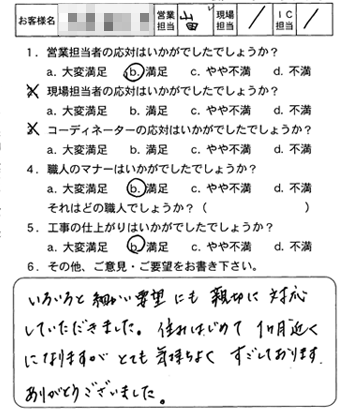 お客様名 営業担当 山田 現場担当 / IC担当 /
1．営業担当者の応対はいかがでしたでしょうか？
a. 大変満足 b. 満足 c. やや不満 d. 不満
2．現場担当者の応対はいかがでしたでしょうか？
a. 大変満足 b. 満足 c. やや不満 d. 不満
3．コーディネーターの応対はいかがでしたでしょうか？
a. 大変満足 b. 満足 c. やや不満 d. 不満
4．職人のマナーはいかがでしたでしょうか？
a. 大変満足 b. 満足 c. やや不満 d. 不満
それはどの職人でしょうか？（ ）
5．工事の仕上がりはいかがでしたでしょうか？
a. 大変満足 b. 満足 c. やや不満 d. 不満
6．その他、ご意見・ご要望をお書き下さい。
いろいろと細かい要望にも親切に対応
していただきました。住みはじめて1ヶ月近く
になりますがとても気持ちよくすごしております。
ありがとうございました。